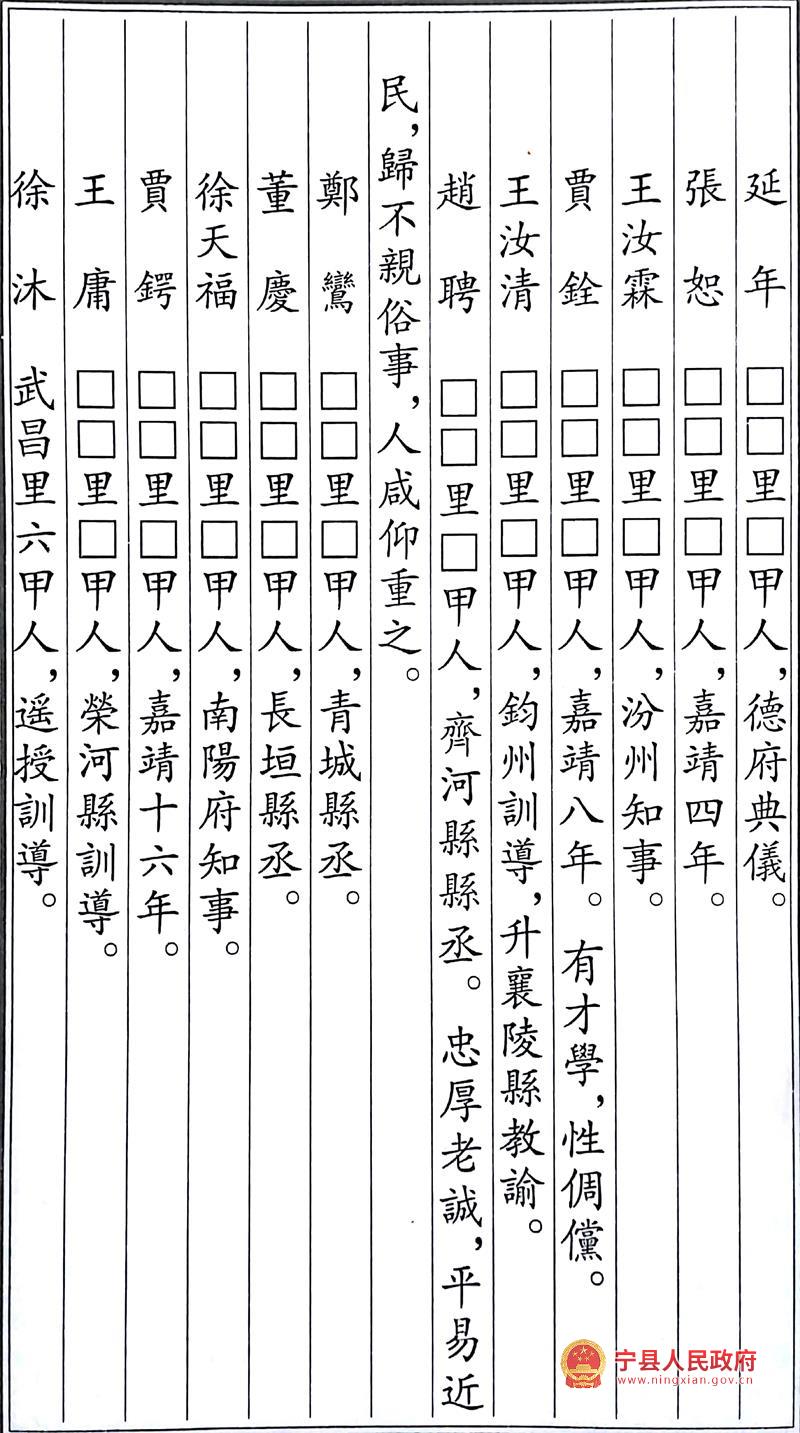 延年 □□里□甲人，德府典儀。
張恕 □□里□甲人，嘉靖四年。
王汝霖 □□里□甲人，汾州知事。
賈銓 □□里□甲人，嘉靖八年。有才學，性倜儻。
王汝清 □□里□甲人，鈞州訓導，升襄陵縣教諭。
趙聘 □□里□甲人，齊河縣縣丞。忠厚老誠，平易近
民，歸不親俗事，人咸仰重之。
鄭鸞 □□里□甲人，青城縣丞。
董慶 □□里□甲人，長垣縣丞。
徐天福 □□里□甲人，南陽府知事。
賈鍔 □□里□甲人，嘉靖十六年。
王庸 □□里□甲人，榮河縣訓導。
徐沐 武昌里六甲人，遥授訓導。
宁县人民政府
www.ningxian.gov.cn